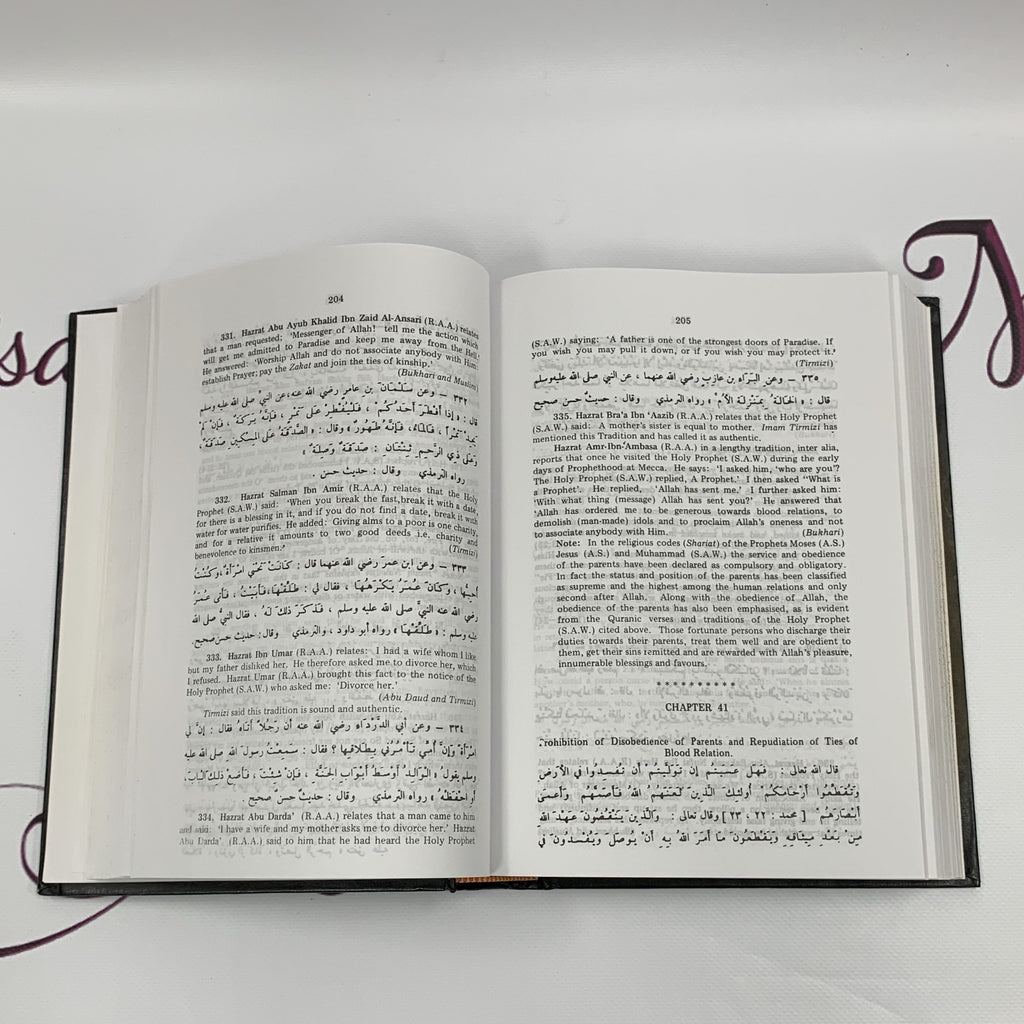 204
331. Hazrat Abu Ayub Khalid Ibn Zaid Al-Ansari (R.A.A.) relates
that a man requested; 'Messenger of Allah! tell me the action which
will get me admitted to Paradise and keep me away from the Hell.'
He answered: 'Worship Allah and do not associate anybody with Him;
establish Prayer; pay the Zakat and join the ties of kinship.'
(Bukhari and Muslim)
٣٣٢ — وعن سَلْمَانَ بن عامرٍ رضي الله عنه، عن النبي صلى الله عليه وسلم
قال : « إذا أَفْطَرَ أَحَدُكُمْ ، فَلْيُفْطِرْ عَلى تَمْرٍ ، فَإِنَّهُ بَرَكَةٌ ، فَإِنْ لَمْ
يَجِدْ تَمْراً ، فَالمَاءُ ، فَإِنَّهُ طَهُورٌ » وقال : « الصَّدَقَةُ عَلَى المِسْكِينِ صَدَقَةٌ ،
وَعَلَى ذِي الرَّحِمِ ثِنْتَانِ : صَدَقَةٌ وَصِلَةٌ »
رواه الترمذي وقال : حديث حسن .
332. Hazrat Salman Ibn Amir (R.A.A.) relates that the Holy
Prophet (S.A.W.) said: 'When you break the fast,break it with a date,
for there is a blessing in it, and if you do not find a date, break it with
water for water purifies. He added: Giving alms to a poor is one charity,
and for a relative it amounts to two good deeds i.e. charity and
benevolence to kinsmen.'
(Tirmizi)
٣٣٣ — وعن ابن عمرَ رضي الله عنهما قال : كَانَتْ تَحْتِي امْرَأَةٌ ،وَكُنْتُ
أُحِبُّها ، وَكَانَ عُمَرُ يَكْرَهُهَا ، فقال لي : طَلِّقْهَا، فَأَبَيْتُ ، فَأَتَى عُمَرُ
رضي الله عنه النبيَّ صلى الله عليه وسلم ، فَذَكَرَ ذلكَ لَهُ ، فقال النبيُّ صلى الله
عليه وسلم : « طَلِّقْهَا » رواه أبو داود ، والترمذي وقال: حديث حسن صحيح.
333. Hazrat Ibn Umar (R.A.A.) relates: I had a wife whom I like
but my father disliked her. He therefore asked me to divorce her, which
I refused. Hazrat Umar (R.A.A.) brought this fact to the notice of the
Holy Prophet (S.A.W.) who asked me: 'Divorce her.'
(Abu Daud and Tirmizi)
Tirmizi said this tradition is sound and authentic.
٣٣٤ — وعن أبي الدَّرْدَاءِ رضي الله عنه أن رَجُلاً أَتَاهُ فقال : إنَّ لي
امْرَأَةً وَإنَّ أُمِّي تَأْمُرُنِي بِطَلاقِها ؟ فقال : سَمِعْتُ رسولَ الله صلى الله عليه
وسلم يقولُ « الْوَالِدُ أَوْسَطُ أَبْوَابِ الجَنَّةِ ، فَإِنْ شِئْتَ، فَأَضِعْ ذلِكَ البَابَ،
أَوِ احْفَظْهُ » رواه الترمذي وقال : حديثٌ حسنٌ صحيح .
334. Hazrat Abu Darda' (R.A.A.) relates that a man came to him
and said: 'I have a wife and my mother asks me to divorce her.' Hazrat
Abu Darda' (R.A.A.) said to him that he had heard the Holy Prophet
205
(S.A.W.) saying: 'A father is one of the strongest doors of Paradise. If
you wish you may pull it down, or if you wish you may protect it.'
(Tirmizi)
٣٣٥ — وعن البَرَاءِ بن عازبٍ رضي الله عنهما، عن النبي صلى الله عليه وسلم
قال : « الخَالَةُ بِمَنْزِلَةِ الأُمِّ » رواه الترمذي وقال : حديثٌ حسن صحيح
335. Hazrat Bra'a Ibn 'Aazib (R.A.A.) relates that the Holy Prophet
(S.A.W.) said: A mother's sister is equal to mother. Imam Tirmizi has
mentioned this Tradition and has called it as authentic.
Hazrat Amr-Ibn-'Ambasa (R.A.A.) in a lengthy tradition, inter alia,
reports that once he visited the Holy Prophet (S.A.W.) during the early
days of Prophethood at Mecca. He says: 'I asked him, 'who are you'?
The Holy Prophet (S.A.W.) replied, A Prophet.' I then asked "What is
a Prophet'. He replied, 'Allah has sent me.' I further asked him:
'With what thing (message) Allah has sent you?' He answered that
'Allah has ordered me to be generous towards blood relations, to
demolish (man-made) idols and to proclaim Allah's oneness and not
to associate anybody with Him.
(Bukhari)
Note: In the religious codes (Shariat) of the Prophets Moses (A.S.)
Jesus (A.S.) and Muhammad (S.A.W.) the service and obedience
of the parents have been declared as compulsory and obligatory.
In fact the status and position of the parents has been classified
as supreme and the highest among the human relations and only
second after Allah. Along with the obedience of Allah, the
obedience of the parents has also been emphasised, as is evident
from the Quranic verses and traditions of the Holy Prophet
(S.A.W.) cited above. Those fortunate persons who discharge their
duties towards their parents, treat them well and are obedient to
them, get their sins remitted and are rewarded with Allah's pleasure,
innumerable blessings and favours.
**********
CHAPTER 41
Prohibition of Disobedience of Parents and Repudiation of Ties of
Blood Relation.
قال الله تعالى : فَهَلْ عَسَيْتُمْ إن تَوَلَّيْتُمْ أَنْ تُفْسِدُوا في الأَرْضِ
وَتُقَطِّعُوا أَرْحَامَكُمْ أُولئِكَ الَّذِينَ لَعَنَهُمُ اللهُ فَأَصَمَّهُمْ وَأَعْمَى
أَبْصَارَهُمْ [ محمد : ٢٢ ، ٢٣ ] وقال تعالى : وَالَّذِينَ يَنْقُضُونَ عَهْدَ اللهِ
مِنْ بَعْدِ مِيثَاقِهِ وَيَقْطَعُونَ مَا أَمَرَ اللهُ بِهِ أَنْ يُوصَلَ وَيُفْسِدُونَ في